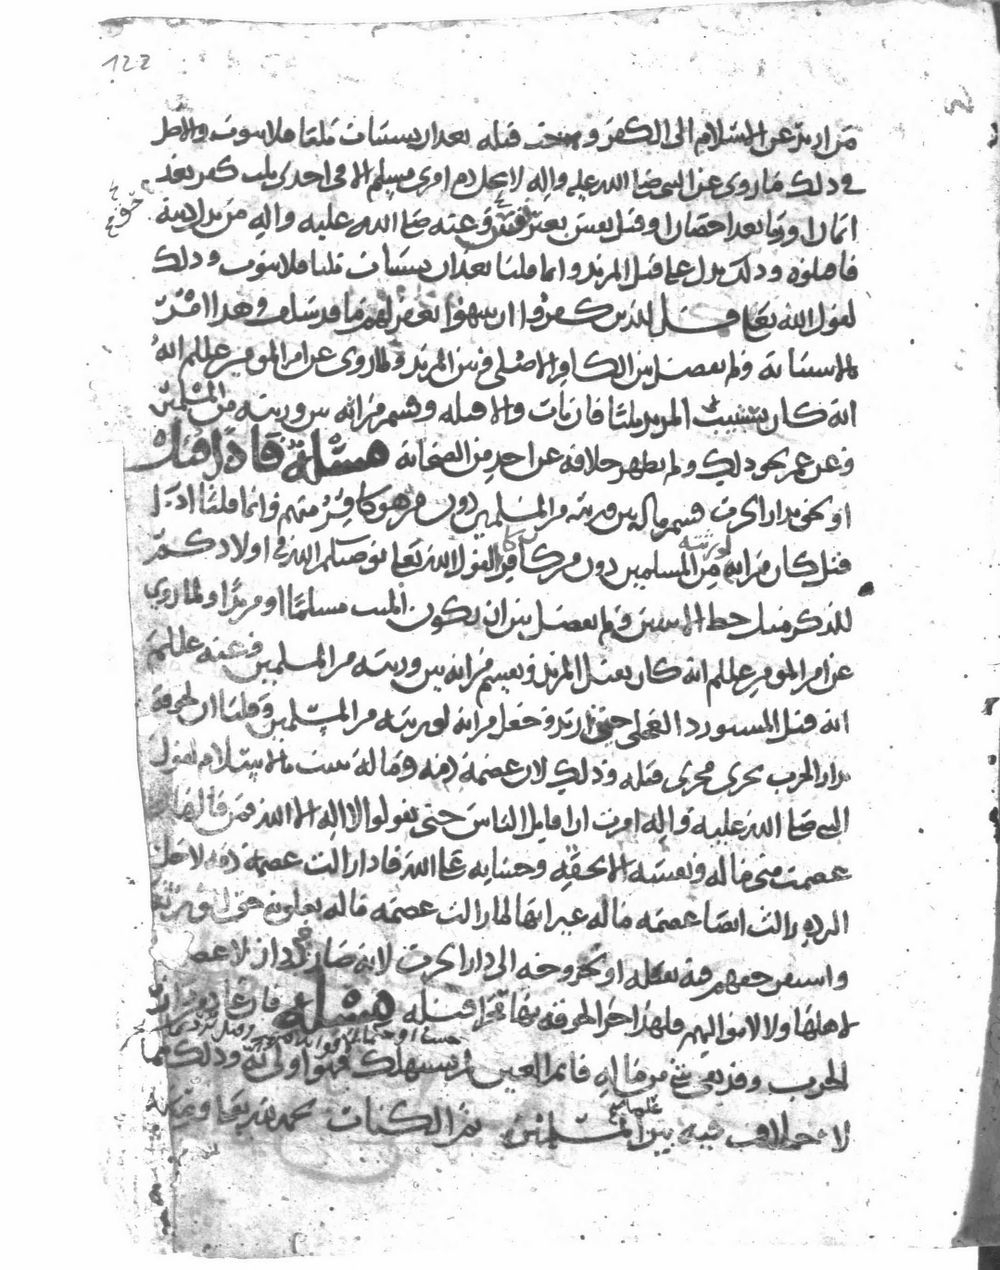 122
من ارتد عن الاسلام الى الكفر وجب قتله بعد ان يستتاب ثلثا فلا يتوب والاصل
في ذلك ما روي عن النبي صلى الله عليه واله لا يحل دم امرئ مسلم الا في احدى ثلث كفر بعد
ايمان او زنا بعد احصان او قتل نفس بغير نفس وعنه صلى الله عليه واله من بدل دينه
فاقتلوه ودلك يدل على قتل المرتد وانما قلنا بعد ان يستتاب ثلثا فلا يتوب ودلك
لقول الله تعالى قل للذين كفروا ان ينتهوا يغفر لهم ما قد سلف وهدا امر
بالاستتابة ولم يفصل بين الكافر الاصلي وبين المرتد ولما روي عن امير المومنين عليلم انه
انه كان يستتيب المرتد ثلثا فان تاب والا قتله وقسم ميراثه بين ورثته من المسلمين
وعن عمر نحو دلك ولم يظهر خلافه عن احد من الصحابة مسئلة فاذا قتل
او لحق بدار الحرب قسم ماله بين ورثته من المسلمين دون من هو كافر منهم وانما قلنا اذا
قتل كان ميراثه لورثته من المسلمين دون من كان كافرا لقول الله تعالى يوصيكم الله في اولادكم
للذكر مثل حظ الانثيين ولم يفصل بين ان يكون الميت مسلما او مرتدا ولما روي
عن امير المومنين عليلم انه كان يقتل المرتد ويقسم ميراثه بين ورثته من المسلمين وعنه عليلم
انه قتل المستورد العجلي حين ارتد وجعل ميراثه لورثته من المسلمين وقلنا ان لحوقه
بدار الحرب يجري مجرى قتله وذلك لان عصمة دمه وماله تثبت بالاسلام لقول
النبي صلى الله عليه واله امرت ان اقاتل الناس حتى يقولوا لا اله الا الله فمن قالها
عصمت مني ماله ونفسه الا بحقه وحسابه على الله فاذا زالت عصمة دمه لاجل
الردة زالت ايضا عصمة ماله غير انها لما زالت عصمة ماله
واستقر حقهم فيه بقتله او بخروجه الى دار الحرب لانه صار في دار لا
لاهلها ولا لاموالهم فلهذا جرا لحوقه بها مجرا قتله مسئلة فان عاد من دار
الحرب وقد بقي شي من ماله قائم العين لم يستهلك فهو اولى به ودلك مما
لا خلاف فيه بين المسلمين تم الكتاب بحمد الله تعالى ومنه